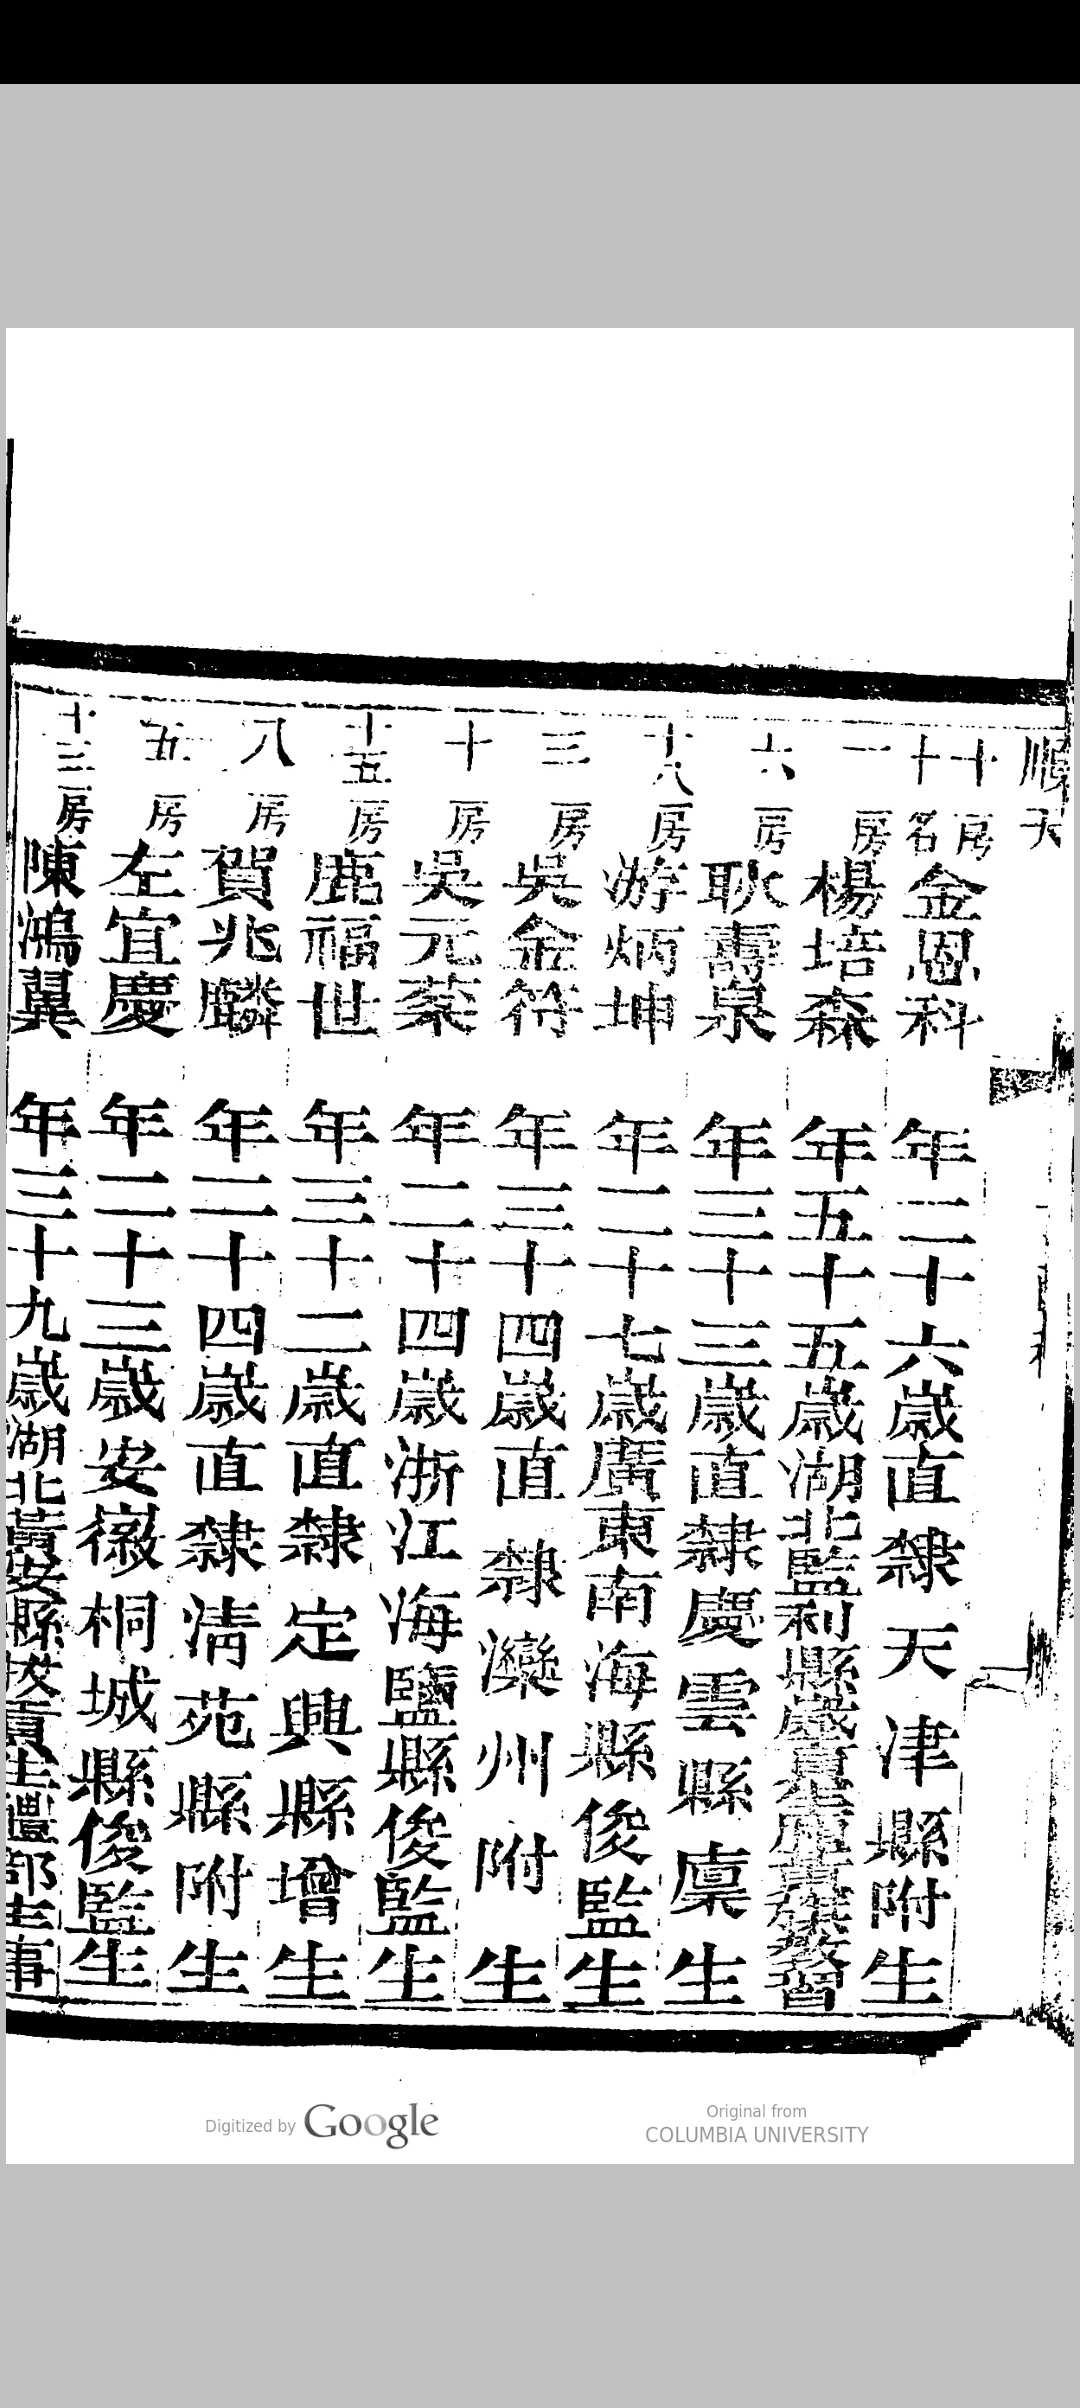 順天
十房 十名 金恩科 年二十六歲直隸天津縣附生
一房 楊培森 年五十五歲湖北監利縣歲貢生應黃旗教習
六房 耿壽泉 年三十三歲直隸慶雲縣廩生
十八房 游炳坤 年二十七歲廣東南海縣俊監生
三房 吳金符 年三十四歲直隸灤州附生
十房 吳元棻 年二十四歲浙江海鹽縣俊監生
十五房 鹿福世 年三十二歲直隸定興縣增生
八房 賀兆麟 年二十四歲直隸清苑縣附生
五房 左宜慶 年二十三歲安徽桐城縣俊監生
十三房 陳鴻翼 年三十九歲湖北黃安縣拔貢生禮部主事
Digitized by Google
Original from
COLUMBIA UNIVERSITY